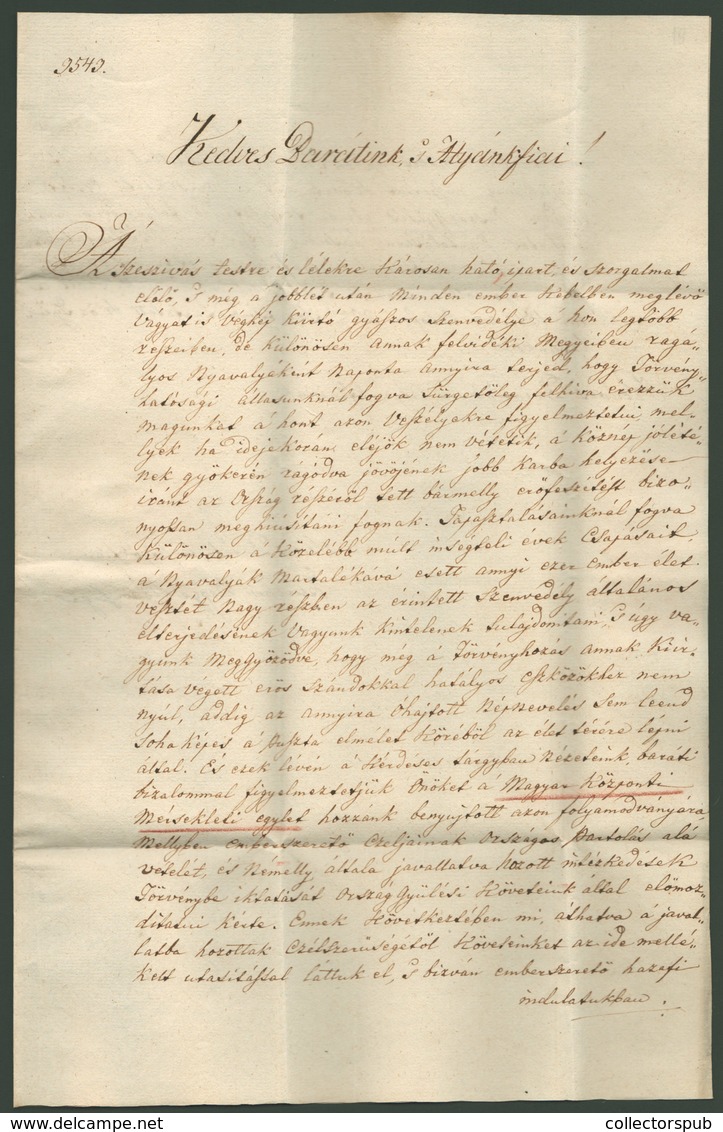 9549.
Kedves Barátink, s Atyánkfiai!
A' szeszivás testre és lélekre károsan ható, ipart, és szorgalmat
előlő, s még a jobblét után minden ember kebelben meglévő
vágyat is végkép kiirtó gyászos szenvedélye a' hon legtöbb
részeiben, de különösen annak felvidéki Megyeiben ragá,,
lyos Nyavalyaként naponta annyira terjed, hogy Törvény,,
hatósági állásunknál fogva sürgetőleg felhiva érezzük
magunkat a' hont azon veszélyekre figyelmeztetni, mel,,
lyek ha idejekorán eléjök nem vétetik, a' köznép jóllété,,
nek gyökerén rágódva jövőjének jobb karba helyezése
iránt az Ország részéről tett bármelly erőfeszitést bizo,,
nyossan meghiúsitani fognak. Tapasztalásainknál fogva
különösen a' közelebb múlt inségteli evek csapásait,
a Nyavalyák martalékává esett annyi ezer ember élet
vesztét nagy részben az érintett szenvedély általános
elterjedésének vagyunk kintelenek tulajdonitani, s úgy va,,
gyunk meggyőződve, hogy még a' Törvényhozás annak kiir,,
tása végett erős szándokkal hatályos eszközökhez nem
nyúl, addig az annyira óhajtott Népnevelés sem leend
soha képes, a' puszta elmélet köréből az élet térére lépni
által. És ezek lévén a' kérdéses tárgyban nézeteink, baráti
bizalommal figyelmeztetjük Önöket a' Magyar Központi
Mérsékleti egylet hozzánk benyujtott azon folyamodványára,
Mellyben emberszerető czéljainak Országos pártolás alá
vételét, és némelly általa javallatva hozott intézkedések
Törvénybe iktatását Ország Gyülési Követeink által előmoz,,
ditatni kérte. Ennek következtében mi, áthatva a' javal,,
latba hozottak czélszerűségétől Követeinket az ide mellé,,
kelt utasitással láttuk el, s bizván emberszerető hazafi
indulatukban.
collectorspub